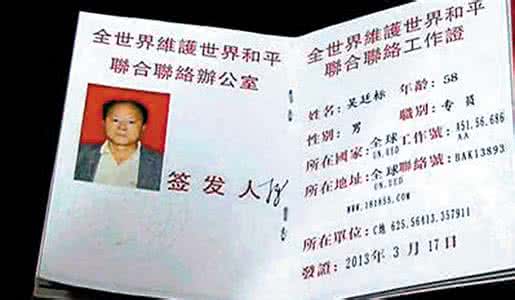 全世界維護世界和平
聯合聯絡辦公室
签发人
全世界維護世界和平
聯合聯絡工作證
姓名：吴廷标 年齡：58
性别：男 職别：专員
所在國家：全球工作號：A51.56.686
UN.UED AA
所在地址：全球聯絡號：BAK13893
UN.UED
WWW.181855.COM
所在單位：C地 625.56413.357911
發證：2013年3月17日